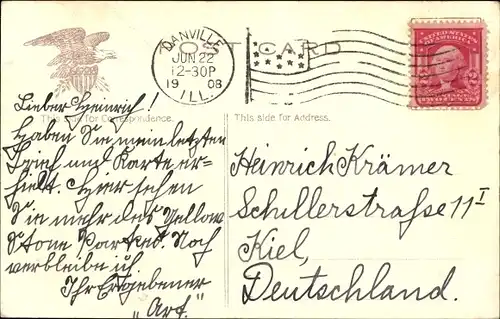 POST CARD
DANVILLE,
JUN 22
12-30P
1908
ILL.
UNITED STATES
OF AMERICA
2 2
TWO CENTS
This side for Correspondence.
This side for Address.
Lieber Heinrich!
Haben Sie mein letzten
Brief und Karte er-
hielt. Hier sehen
Sie mehr des Yellow
Stone Parkes. Noch
verbleibe ich.
Ihr Ergebener
"Art."
Heinrich Krämer
Schillerstraße 11 I
Kiel,
Deutschland.